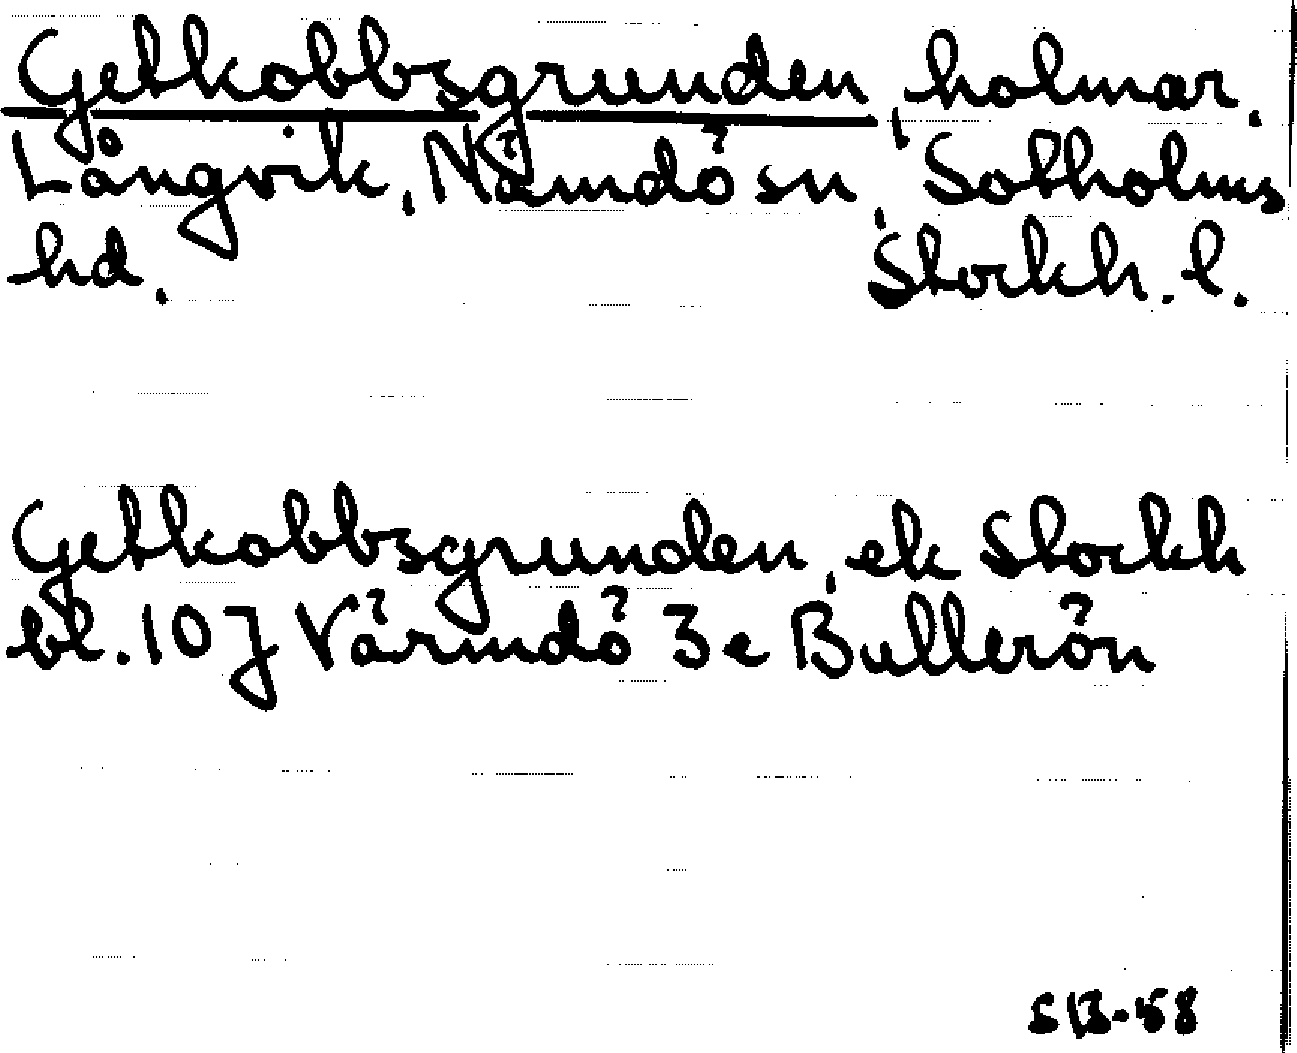 Getkobbsgrunden, holmar.
Långvik, Nämdö sn, Sotholms
hd. Stockh. l.
Getkobbsgrunden, ek Stockh
bl. 107 Värmdö 3e Bullerön
SB-58